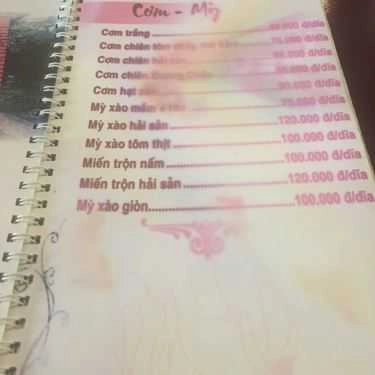 Cơm - Mỳ
Cơm trắng đ/dĩa
Cơm chiên đ/dĩa
Cơm chiên hải sản đ/dĩa
Cơm chiên Dương Châu đ/dĩa
Cơm hạt sen đ/dĩa
Mỳ xào đ/dĩa
Mỳ xào hải sản 120.000 đ/dĩa
Mỳ xào tôm thịt 100.000 đ/dĩa
Miến trộn nấm 100.000 đ/dĩa
Miến trộn hải sản 120.000 đ/dĩa
Mỳ xào giòn 100.000 đ/dĩa